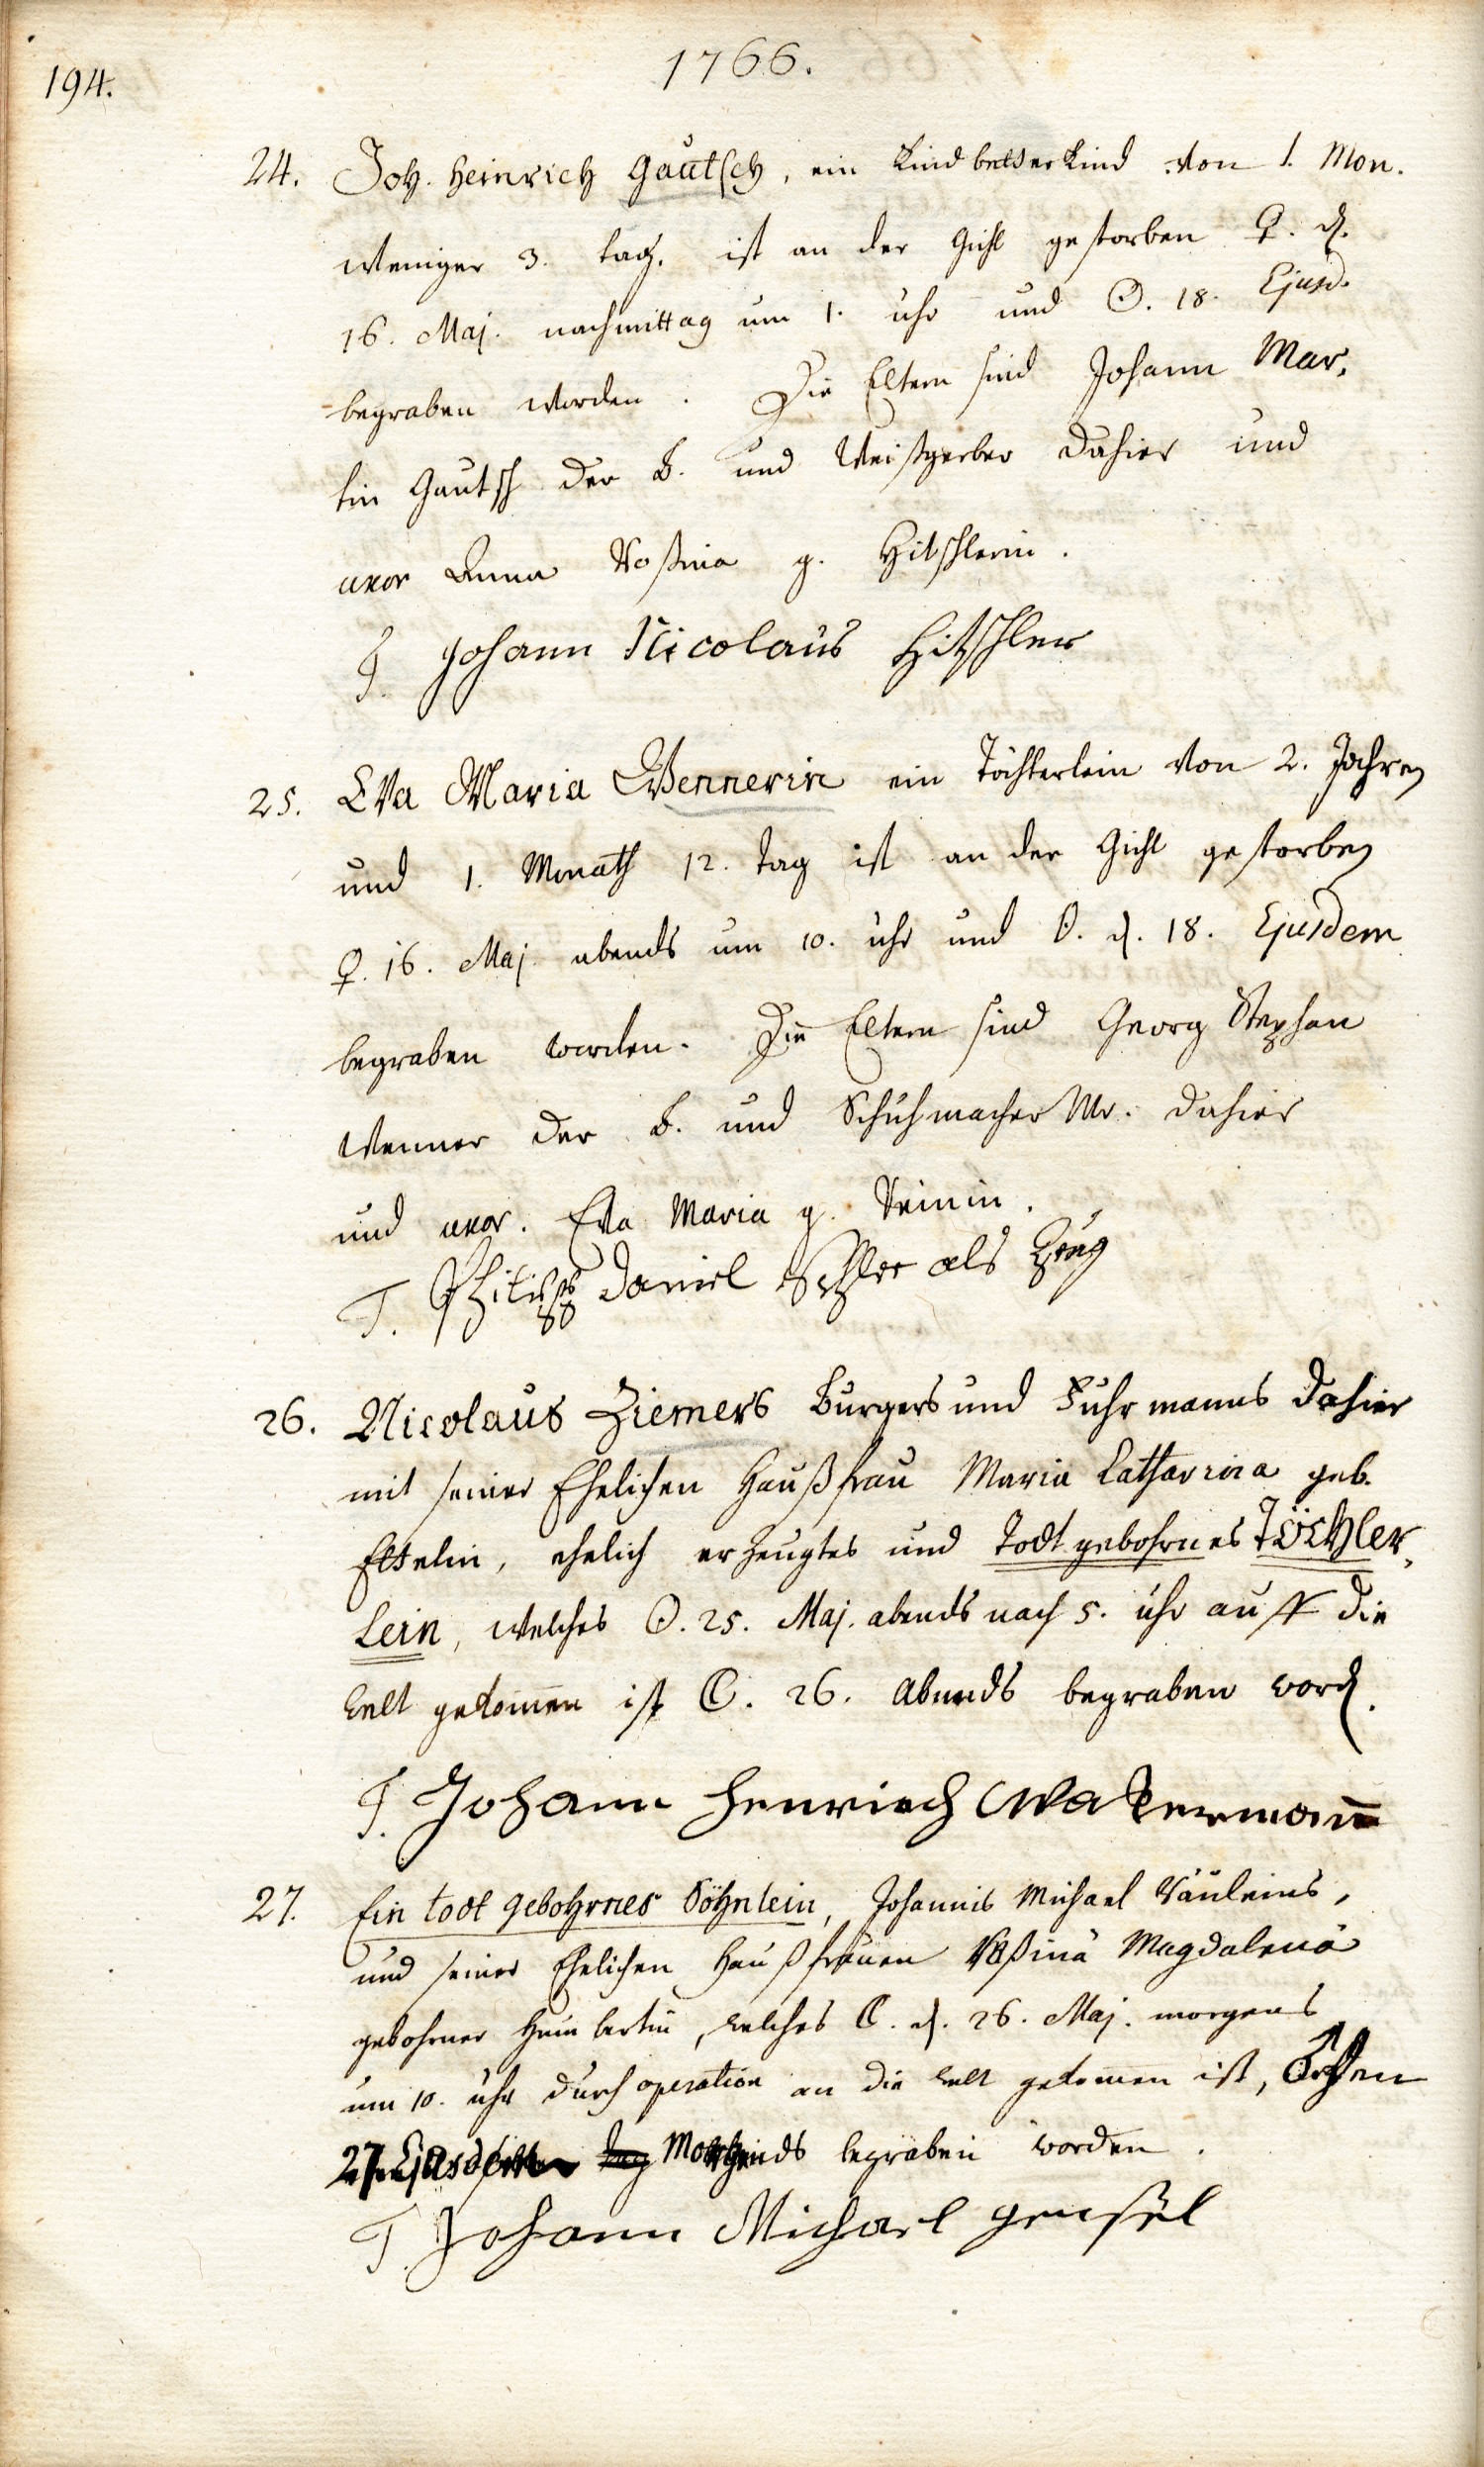 194.
1766.
24. Joh. Heinrich Gautsch, ein Kindbetterkind von 1. Mon.
weniger 3. tag. ist an der Gicht gestorben ♀. d.
16. Maj. nachmittag um 1. uhr und ☉. 18. Ejusd.
begraben worden. Die Eltern sind Johann Mar,
tin Gautsch der b. und Weißgerber dahier und
uxor Anna Rosina g. Hitschlerin.
T. Johann Nicolaus Hitschler
25. Eva Maria Wennerin ein Töchterlein von 2. Jahren
und 1. Monath 12. Tag ist an der Gicht gestorben
♀. 16. Maj. abends um 10. uhr und ☉. d. 18. Ejusdem
begraben worden. Die Eltern sind Georg Stephan
Wenner der b. und Schuhmacher Mr. dahier
und uxor. Eva Maria g.
T. Philipp Daniel als Zeug
26. Nicolaus Ziemers Burgers und Fuhrmanns dahier
mit seiner Ehelichen Haußfrau Maria Catharina geb.
Ettelin, ehelich erzeugtes und Todtgebohrnes Töchter,
Lein, welches ☉. 25. Maj. abends nach 5. uhr auff die
welt gekommen ist ☾. 26. Abends begraben word.
T. Johann Henrich Wakermann
27. Ein todt gebohrnes Söhnlein, Johannis Michael Räuleins,
und seiner Ehelichen Haußfrauen Rosinä Magdalenä
gebohrner Heimbertin, welches ☾. d. 26. Maj. morgens
um 10. uhr durch operation an die welt gekommen ist, ♂ den
27. begraben worden.
T. Johann Michael Gensel